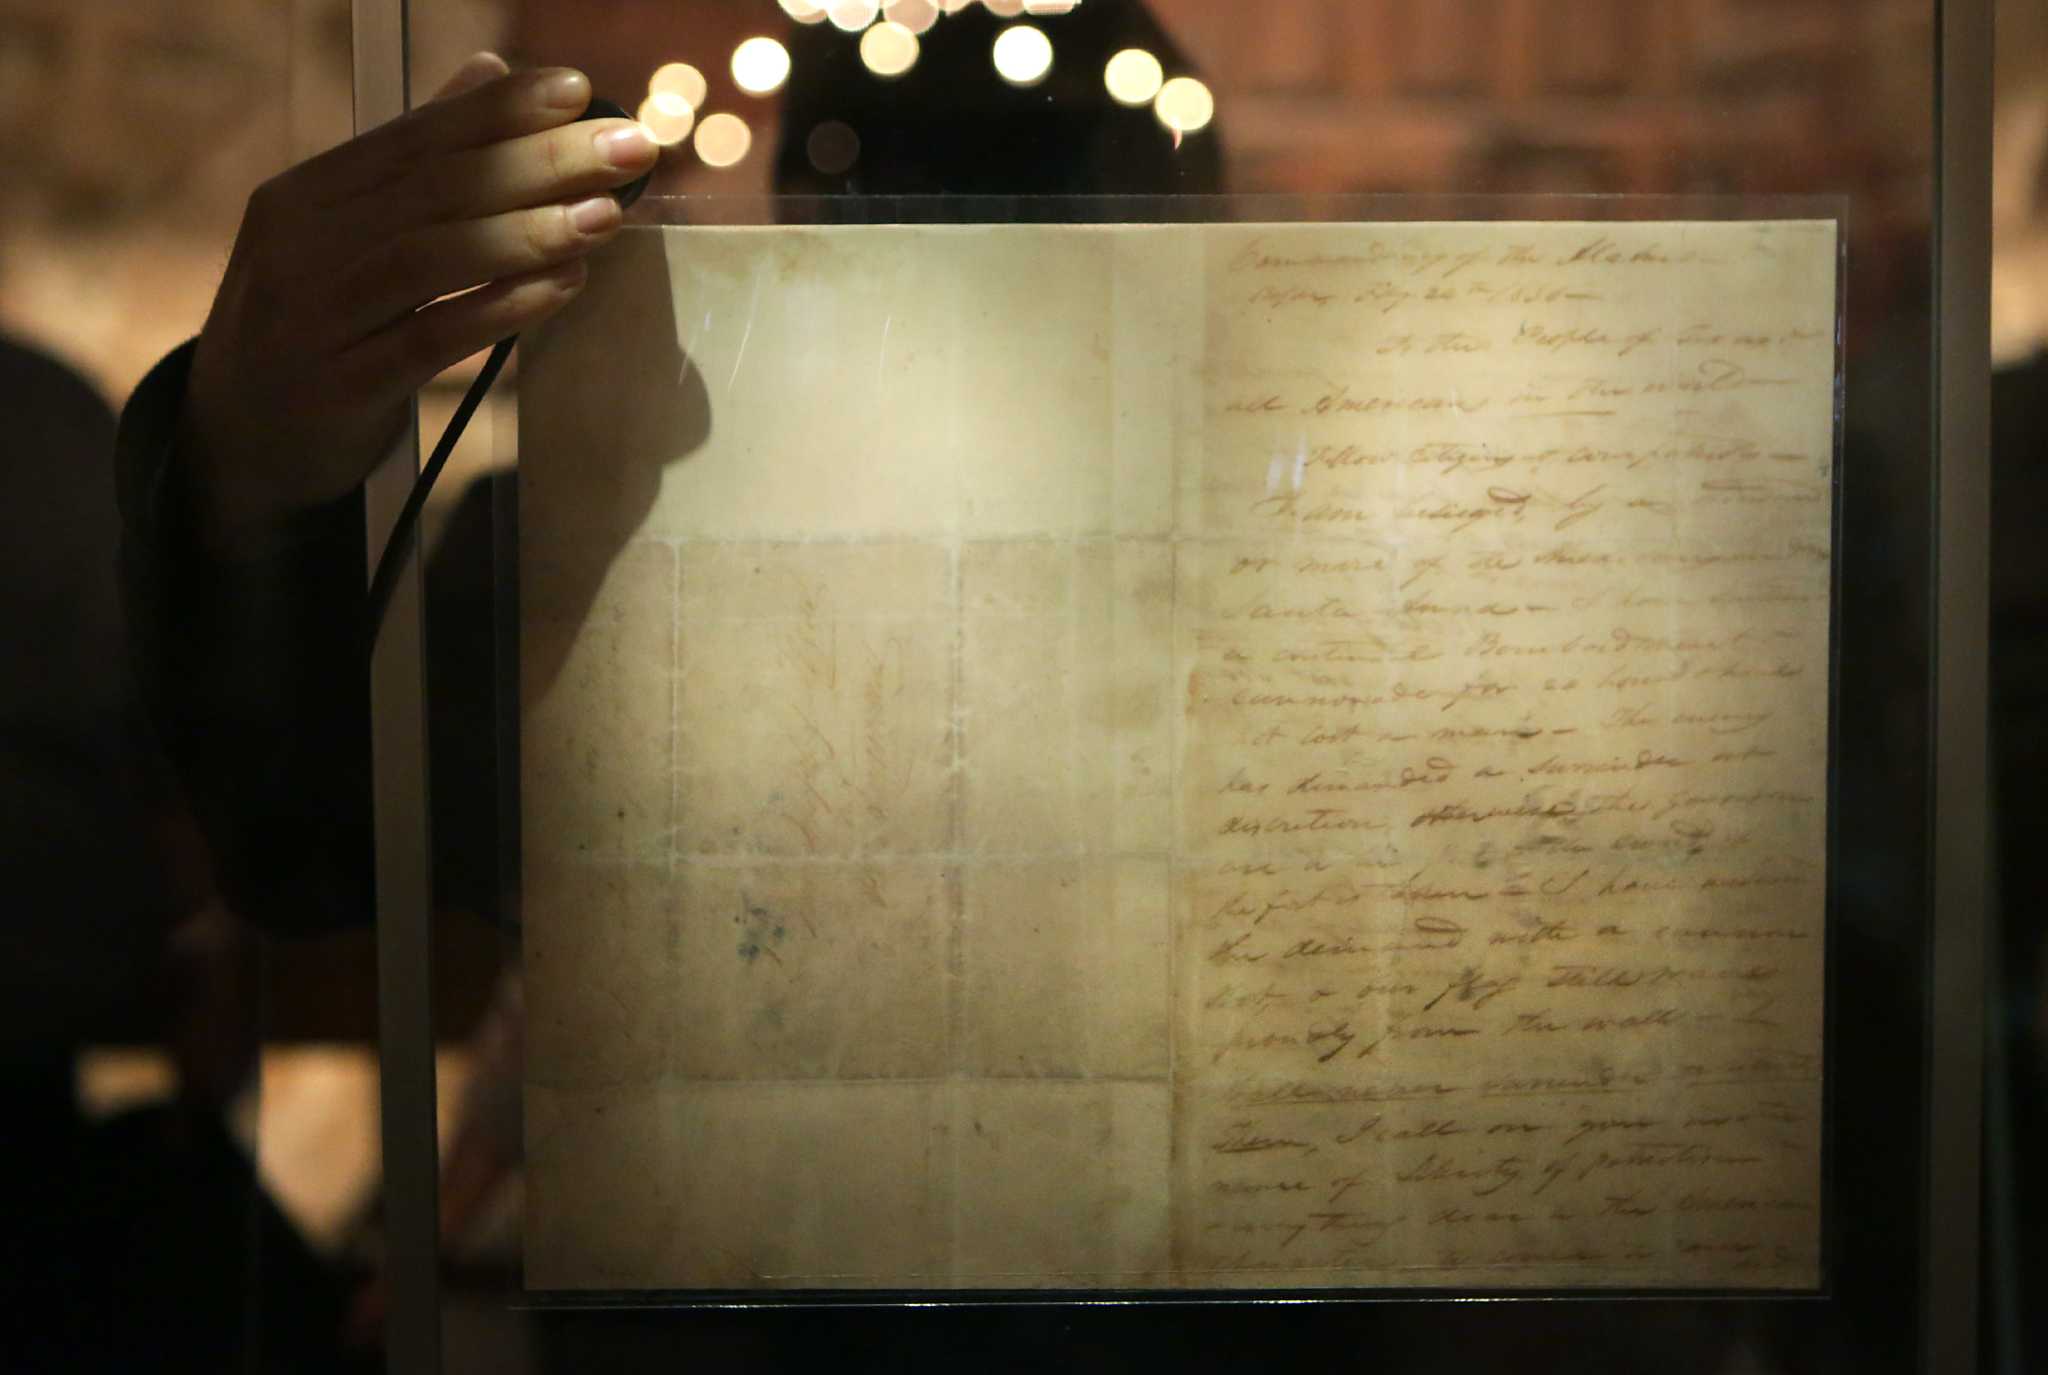 Commandancy of the Alamo—
Bejar, Fby. 24th 1836—
To the People of Texas &
all Americans in the world—
Fellow Citizens & compatriots—
I am besieged, by a thousand
or more of the Mexicans under
Santa Anna — I have sustained
a continual Bombardment &
cannonade for 24 hours & have
not lost a man — The enemy
has demanded a surrender at
discretion, otherwise, the garrison
are to be put to the sword, if
the fort is taken — I have answered
the demand with a cannon
shot, & our flag still waves
proudly from the walls — I
shall never surrender or retreat
Then, I call on you in the
name of Liberty, of patriotism &
everything dear to the American
character, to come to our aid